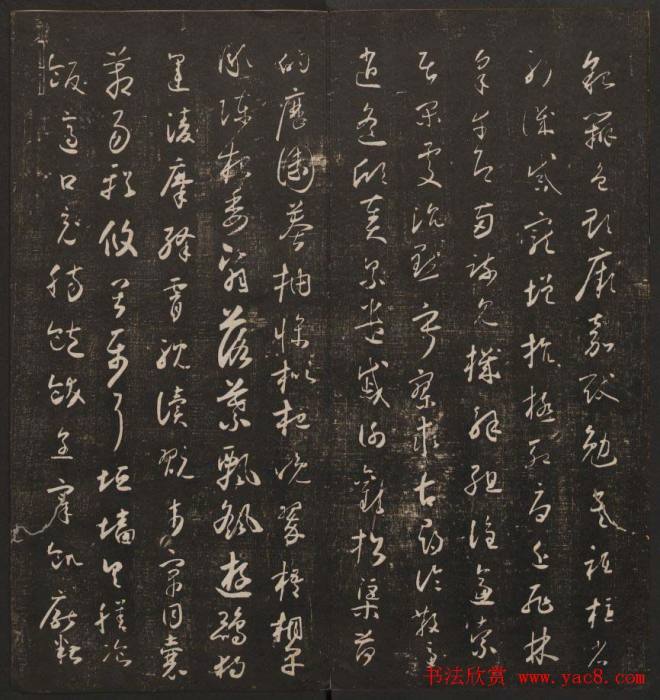 貌辨色貽厥嘉猷勉其祗植省
躬譏誡寵增抗極殆辱近恥林
皋幸即兩疏見機解組誰逼索
居閑處沉默寂寥求古尋論散慮
逍遙欣奏累遣慼謝歡招渠荷
的歷園莽抽條枇杷晚翠梧桐早
彫陳根委翳落葉飄颻遊鵾獨
運凌摩絳霄耽讀翫市寓目囊
箱易輶攸畏屬耳垣墻具膳飡
飯適口充腸飽飫烹宰飢厭糟
书法欣赏 www.yac8.com